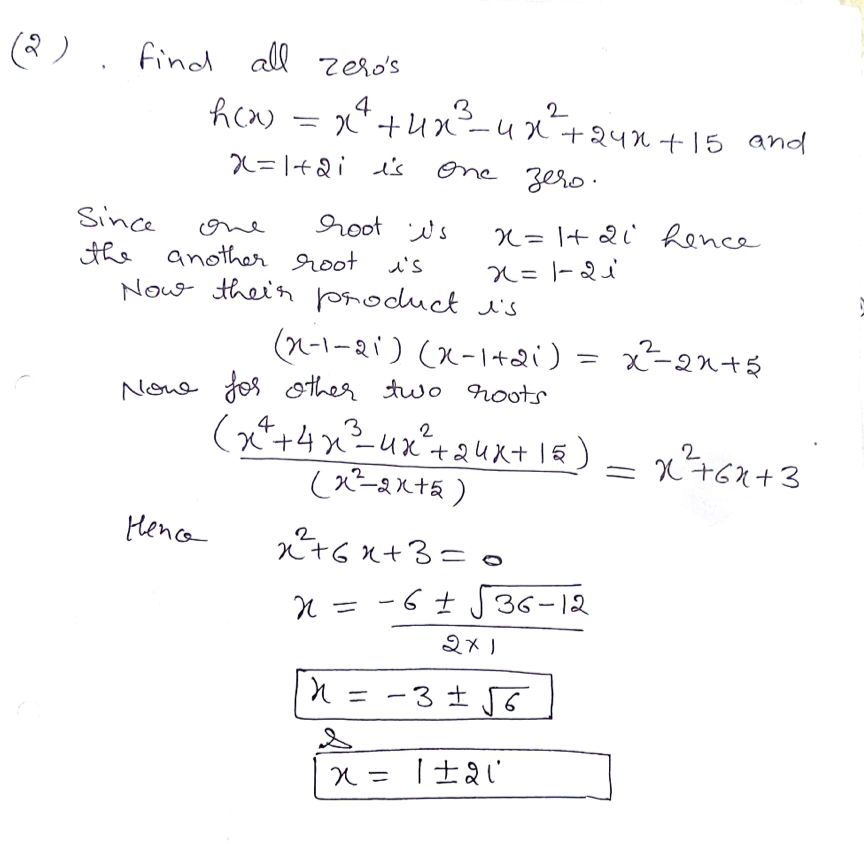 (2) . find all zero's
h(x) = x⁴ + 4x³ - 4x² + 24x + 15 and
x = 1+2i is one zero.
Since one root is x = 1+2i hence
the another root is x = 1-2i
Now their product is
(x-1-2i) (x-1+2i) = x²-2x+5
Now for other two roots
(x⁴+4x³-4x²+24x+15) / (x²-2x+5) = x²+6x+3
Hence x²+6x+3 = 0
x = -6 ± √36-12 / 2×1
x = -3 ± √6
&
x = 1±2i